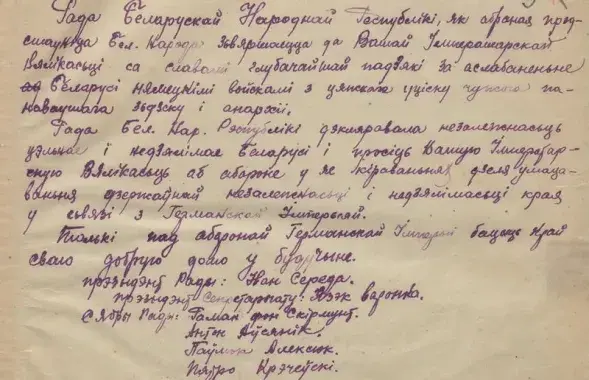 Рада Беларускай Народнай Рэспублікі, як абраная прад-
стаўніца Бел. Народу звяршаецца да Вашай Імператарскай
Вялікасьці са словамі глубачайшай падзякі за аслабаненьне
Беларусі нямецкімі войскамі з цяжкага уціску чужога па-
наваўшага зьдзеку і анархіі.
Рада Бел. Нар. Рэспублікі дэкляравала незалежнасьць
цэльнае і недзялімае Беларусі і просіць Вашую Імператар-
скую Вялікасьць аб абароне у яе кіраваньнях дзеля умаца-
ваньня дзержаўнай незалежнасьці і недзялімасьці края
у сьвязі з Германскай Імперыяй.
Толькі пад абаронай Германскай Імперыі бачыць Край
сваю добрую долю у будучыне.
Прэзыдэнт Рады: Іван Середа.
прэзыдэнт Сэкретарыяту: Язэп Варонка.
Сябры Рады: Раман фон Скірмунт.
Антон Аўсянік.
Паўлюк Алексюк.
Пятро Крэчэўскі.